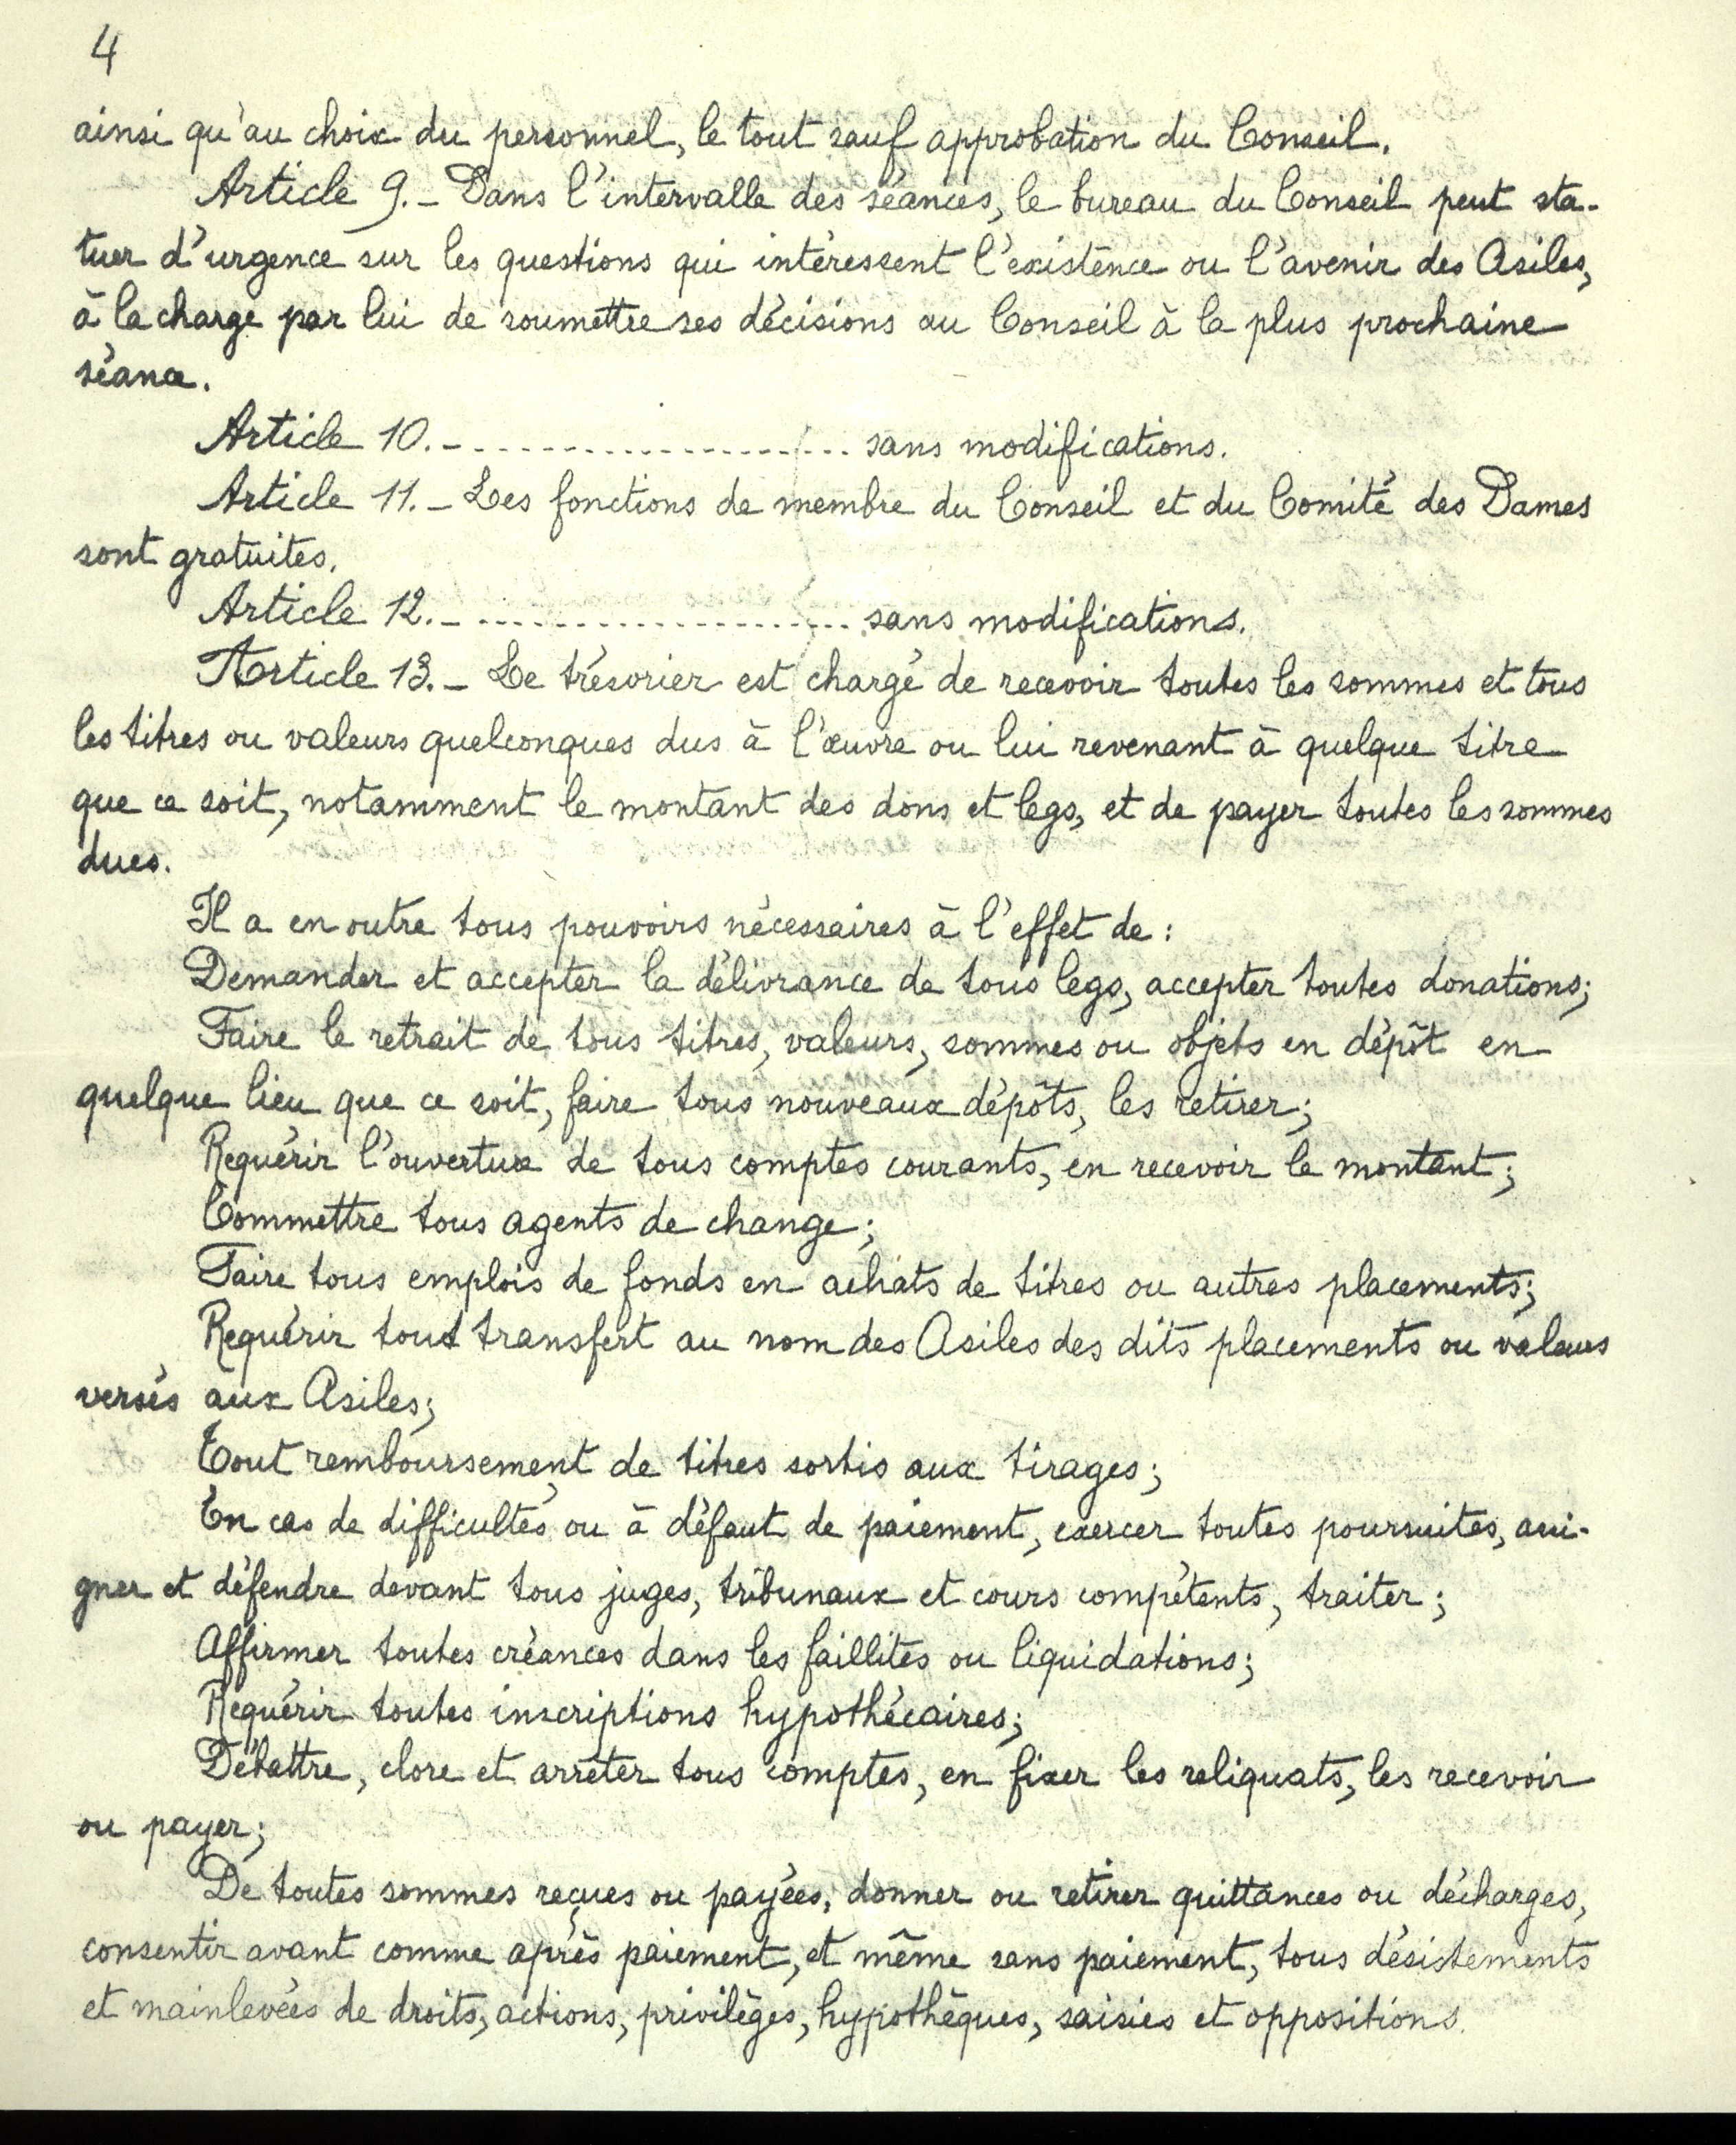 4
ainsi qu'au choix du personnel, le tout sauf approbation du Conseil.
Article 9. - Dans l'intervalle des séances, le bureau du Conseil peut sta-
tuer d'urgence sur les questions qui intéressent l'existence ou l'avenir des Asiles,
à la charge par lui de soumettre ses décisions au Conseil à la plus prochaine
séance.
Article 10. - ........................ sans modifications.
Article 11. - Les fonctions de membre du Conseil et du Comité des Dames
sont gratuites.
Article 12. - ........................ sans modifications.
Article 13. - Le trésorier est chargé de recevoir toutes les sommes et tous
les titres ou valeurs quelconques dus à l'œuvre ou lui revenant à quelque titre
que ce soit, notamment le montant des dons et legs, et de payer toutes les sommes
dues.
Il a en outre tous pouvoirs nécessaires à l'effet de :
Demander et accepter la délivrance de tous legs, accepter toutes donations;
Faire le retrait de tous titres, valeurs, sommes ou objets en dépôt en
quelque lieu que ce soit, faire tous nouveaux dépôts, les retirer;
Requérir l'ouverture de tous comptes courants, en recevoir le montant;
Commettre tous agents de change;
Faire tous emplois de fonds en achats de titres ou autres placements;
Requérir tout transfert au nom des Asiles des dits placements ou valeurs
versés aux Asiles;
Tout remboursement de titres sortis aux tirages;
En cas de difficultés ou à défaut de paiement, exercer toutes poursuites, assi-
gner et défendre devant tous juges, tribunaux et cours compétents, traiter;
Affirmer toutes créances dans les faillites ou liquidations;
Requérir toutes inscriptions hypothécaires;
Débattre, clore et arrêter tous comptes, en fixer les reliquats, les recevoir
ou payer;
De toutes sommes reçues ou payées, donner ou retirer quittances ou décharges,
consentir avant comme après paiement, et même sans paiement, tous désistements
et mainlevées de droits, actions, privilèges, hypothèques, saisies et oppositions.